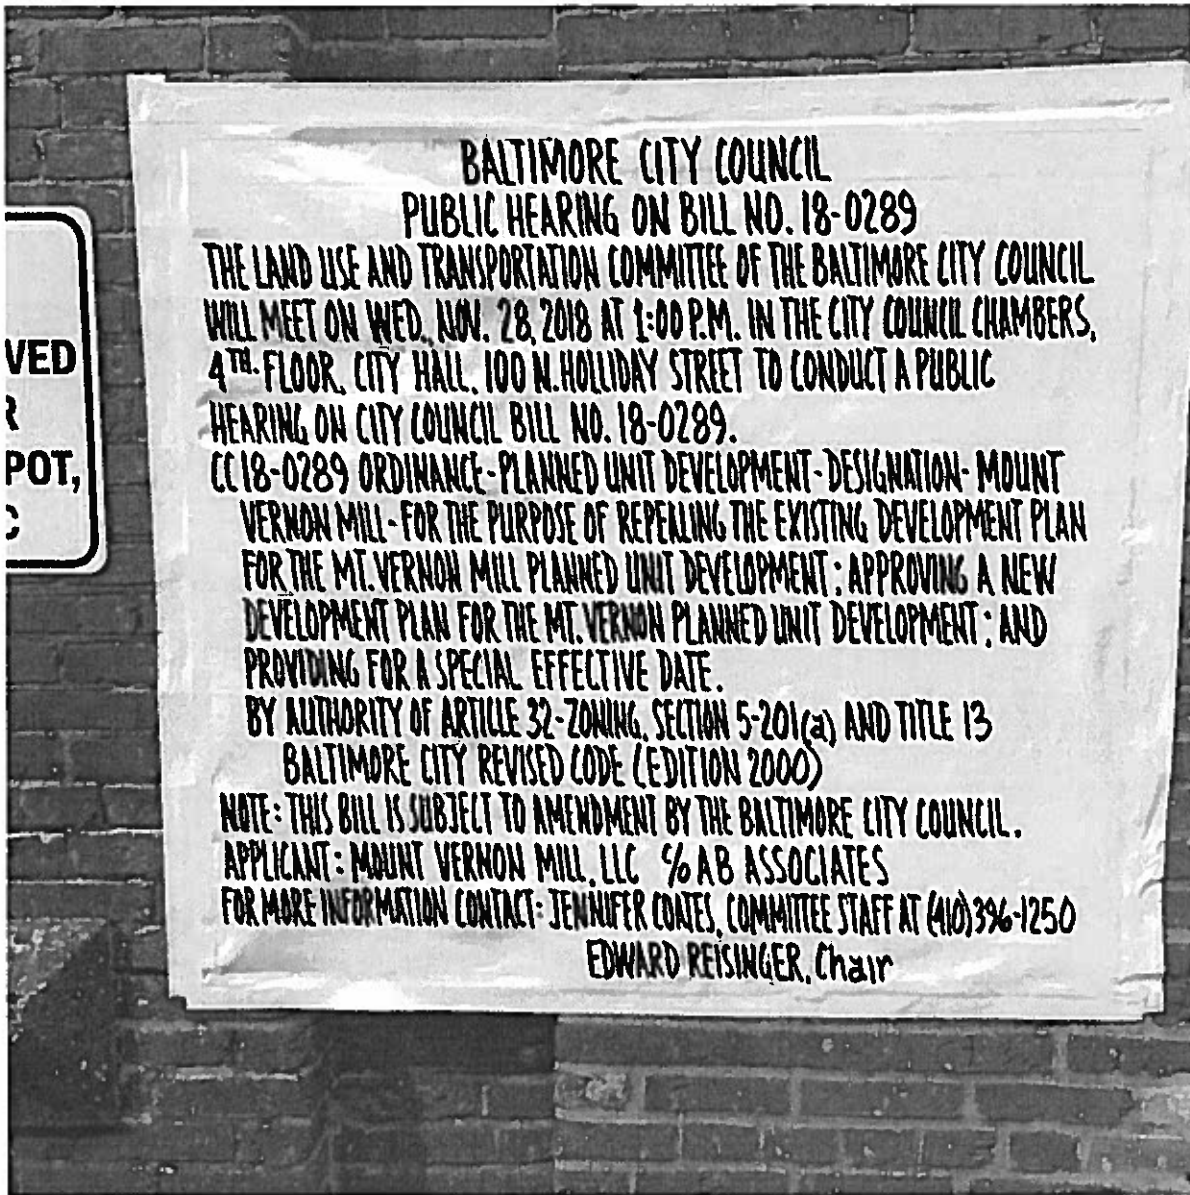 BALTIMORE CITY COUNCIL
PUBLIC HEARING ON BILL NO. 18-0289
THE LAND USE AND TRANSPORTATION COMMITTEE OF THE BALTIMORE CITY COUNCIL
WILL MEET ON WED., NOV. 28, 2018 AT 1:00 P.M. IN THE CITY COUNCIL CHAMBERS,
4TH. FLOOR, CITY HALL, 100 N. HOLLIDAY STREET TO CONDUCT A PUBLIC
HEARING ON CITY COUNCIL BILL NO. 18-0289.
CC 18-0289 ORDINANCE-PLANNED UNIT DEVELOPMENT-DESIGNATION-MOUNT
VERNON MILL-FOR THE PURPOSE OF REPEALING THE EXISTING DEVELOPMENT PLAN
FOR THE MT. VERNON MILL PLANNED UNIT DEVELOPMENT; APPROVING A NEW
DEVELOPMENT PLAN FOR THE MT. VERNON PLANNED UNIT DEVELOPMENT; AND
PROVIDING FOR A SPECIAL EFFECTIVE DATE.
BY AUTHORITY OF ARTICLE 32-ZONING, SECTION 5-201(a) AND TITLE 13
BALTIMORE CITY REVISED CODE (EDITION 2000)
NOTE: THIS BILL IS SUBJECT TO AMENDMENT BY THE BALTIMORE CITY COUNCIL.
APPLICANT: MOUNT VERNON MILL, LLC c/o AB ASSOCIATES
FOR MORE INFORMATION CONTACT: JENNIFER COATES, COMMITTEE STAFF AT (410)396-1250
EDWARD REISINGER, Chair
VED
R
POT,
C